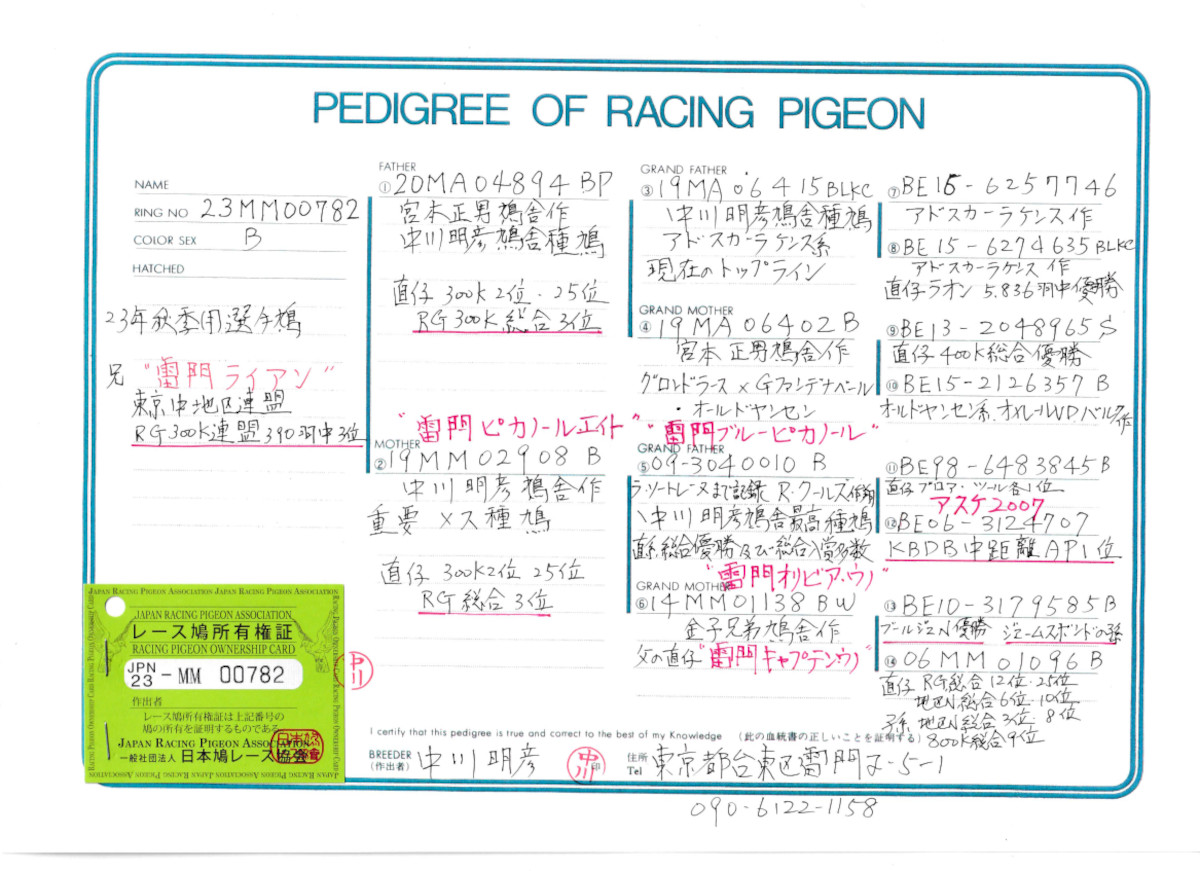 PEDIGREE OF RACING PIGEON
NAME
RING NO 23MM00782
COLOR SEX B
HATCHED
23年秋季用選手鳩
兄 "雷門ライアン"
東京中地区連盟
RG300K連盟390羽中3位
FATHER
① 20MA04894 BP
宮本正男鳩舎作
中川明彦鳩舎種鳩
直仔 300K2位・25位
RG300K総合3位
"雷門ピカノールエイト"
MOTHER
② 19MM02908 B
中川明彦鳩舎作
重要メス種鳩
直仔 300K2位 25位
RG総合3位
GRAND FATHER
③ 19MA06415BLKC
中川明彦鳩舎種鳩
アドスカーラケンス系
現在のトップライン
GRAND MOTHER
④ 19MA06402B
宮本正男鳩舎作
グロンドラース×Gファンテナベール
・オールドヤンセン
"雷門ブルーピカノール"
GRAND FATHER
⑤ 09-3040010 B
ラ・ソートレーヌまで記録 R・クールズ作翔
中川明彦鳩舎最高種鳩
直系総合優勝及び総合入賞多数
"雷門オリビア・ウノ"
GRAND MOTHER
⑥ 14MM01138BW
金子兄弟鳩舎作
父の直仔"雷門キャプテンウノ"
⑦ BE15-6257746
アドスカーラケンス作
⑧ BE15-6274635BLKC
アドスカーラケンス作
直仔ラオン 5.836羽中優勝
⑨ BE13-2048965S
直仔400K総合優勝
⑩ BE15-2126357B
オルドヤンセン系、オメールVDバルク作
⑪ BE98-6483845B
直仔プロア・ツール各1位
アスケ2007
⑫ BE06-3124707
KBDB中距離AP1位
⑬ BE10-3179585B
ブールジュN優勝 ジェームスボンドの孫
⑭ 06MM01096B
直仔 RG総合12位・25位
地区N総合6位・10位
孫 地区N総合3位・8位
800K総合9位
JAPAN RACING PIGEON ASSOCIATION
レース鳩所有権証
RACING PIGEON OWNERSHIP CARD
JPN 23-MM 00782
作出者
レース鳩所有権証は上記番号の
鳩の所有を証明するものである
JAPAN RACING PIGEON ASSOCIATION
一般社団法人 日本鳩レース協会
I certify that this pedigree is true and correct to the best of my Knowledge (此の血統書の正しいことを証明する)
BREEDER (作出者) 中川明彦 印
住所 Tel 東京都台東区雷門2-5-1
090-6122-1158